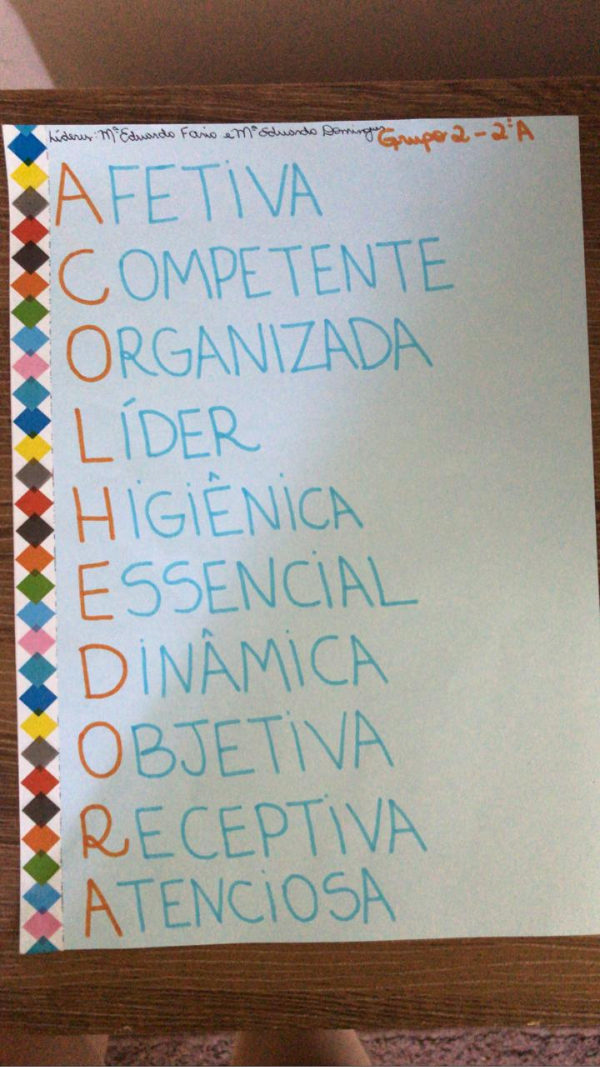 Líderes: Mª Eduarda Faria e Mª Eduarda Domingues
Grupo 2 - 2ºA
AFETIVA
COMPETENTE
ORGANIZADA
LÍDER
HIGIÊNICA
ESSENCIAL
DINÂMICA
OBJETIVA
RECEPTIVA
ATENCIOSA